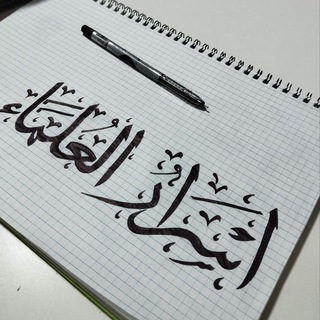 أسرار العلماء